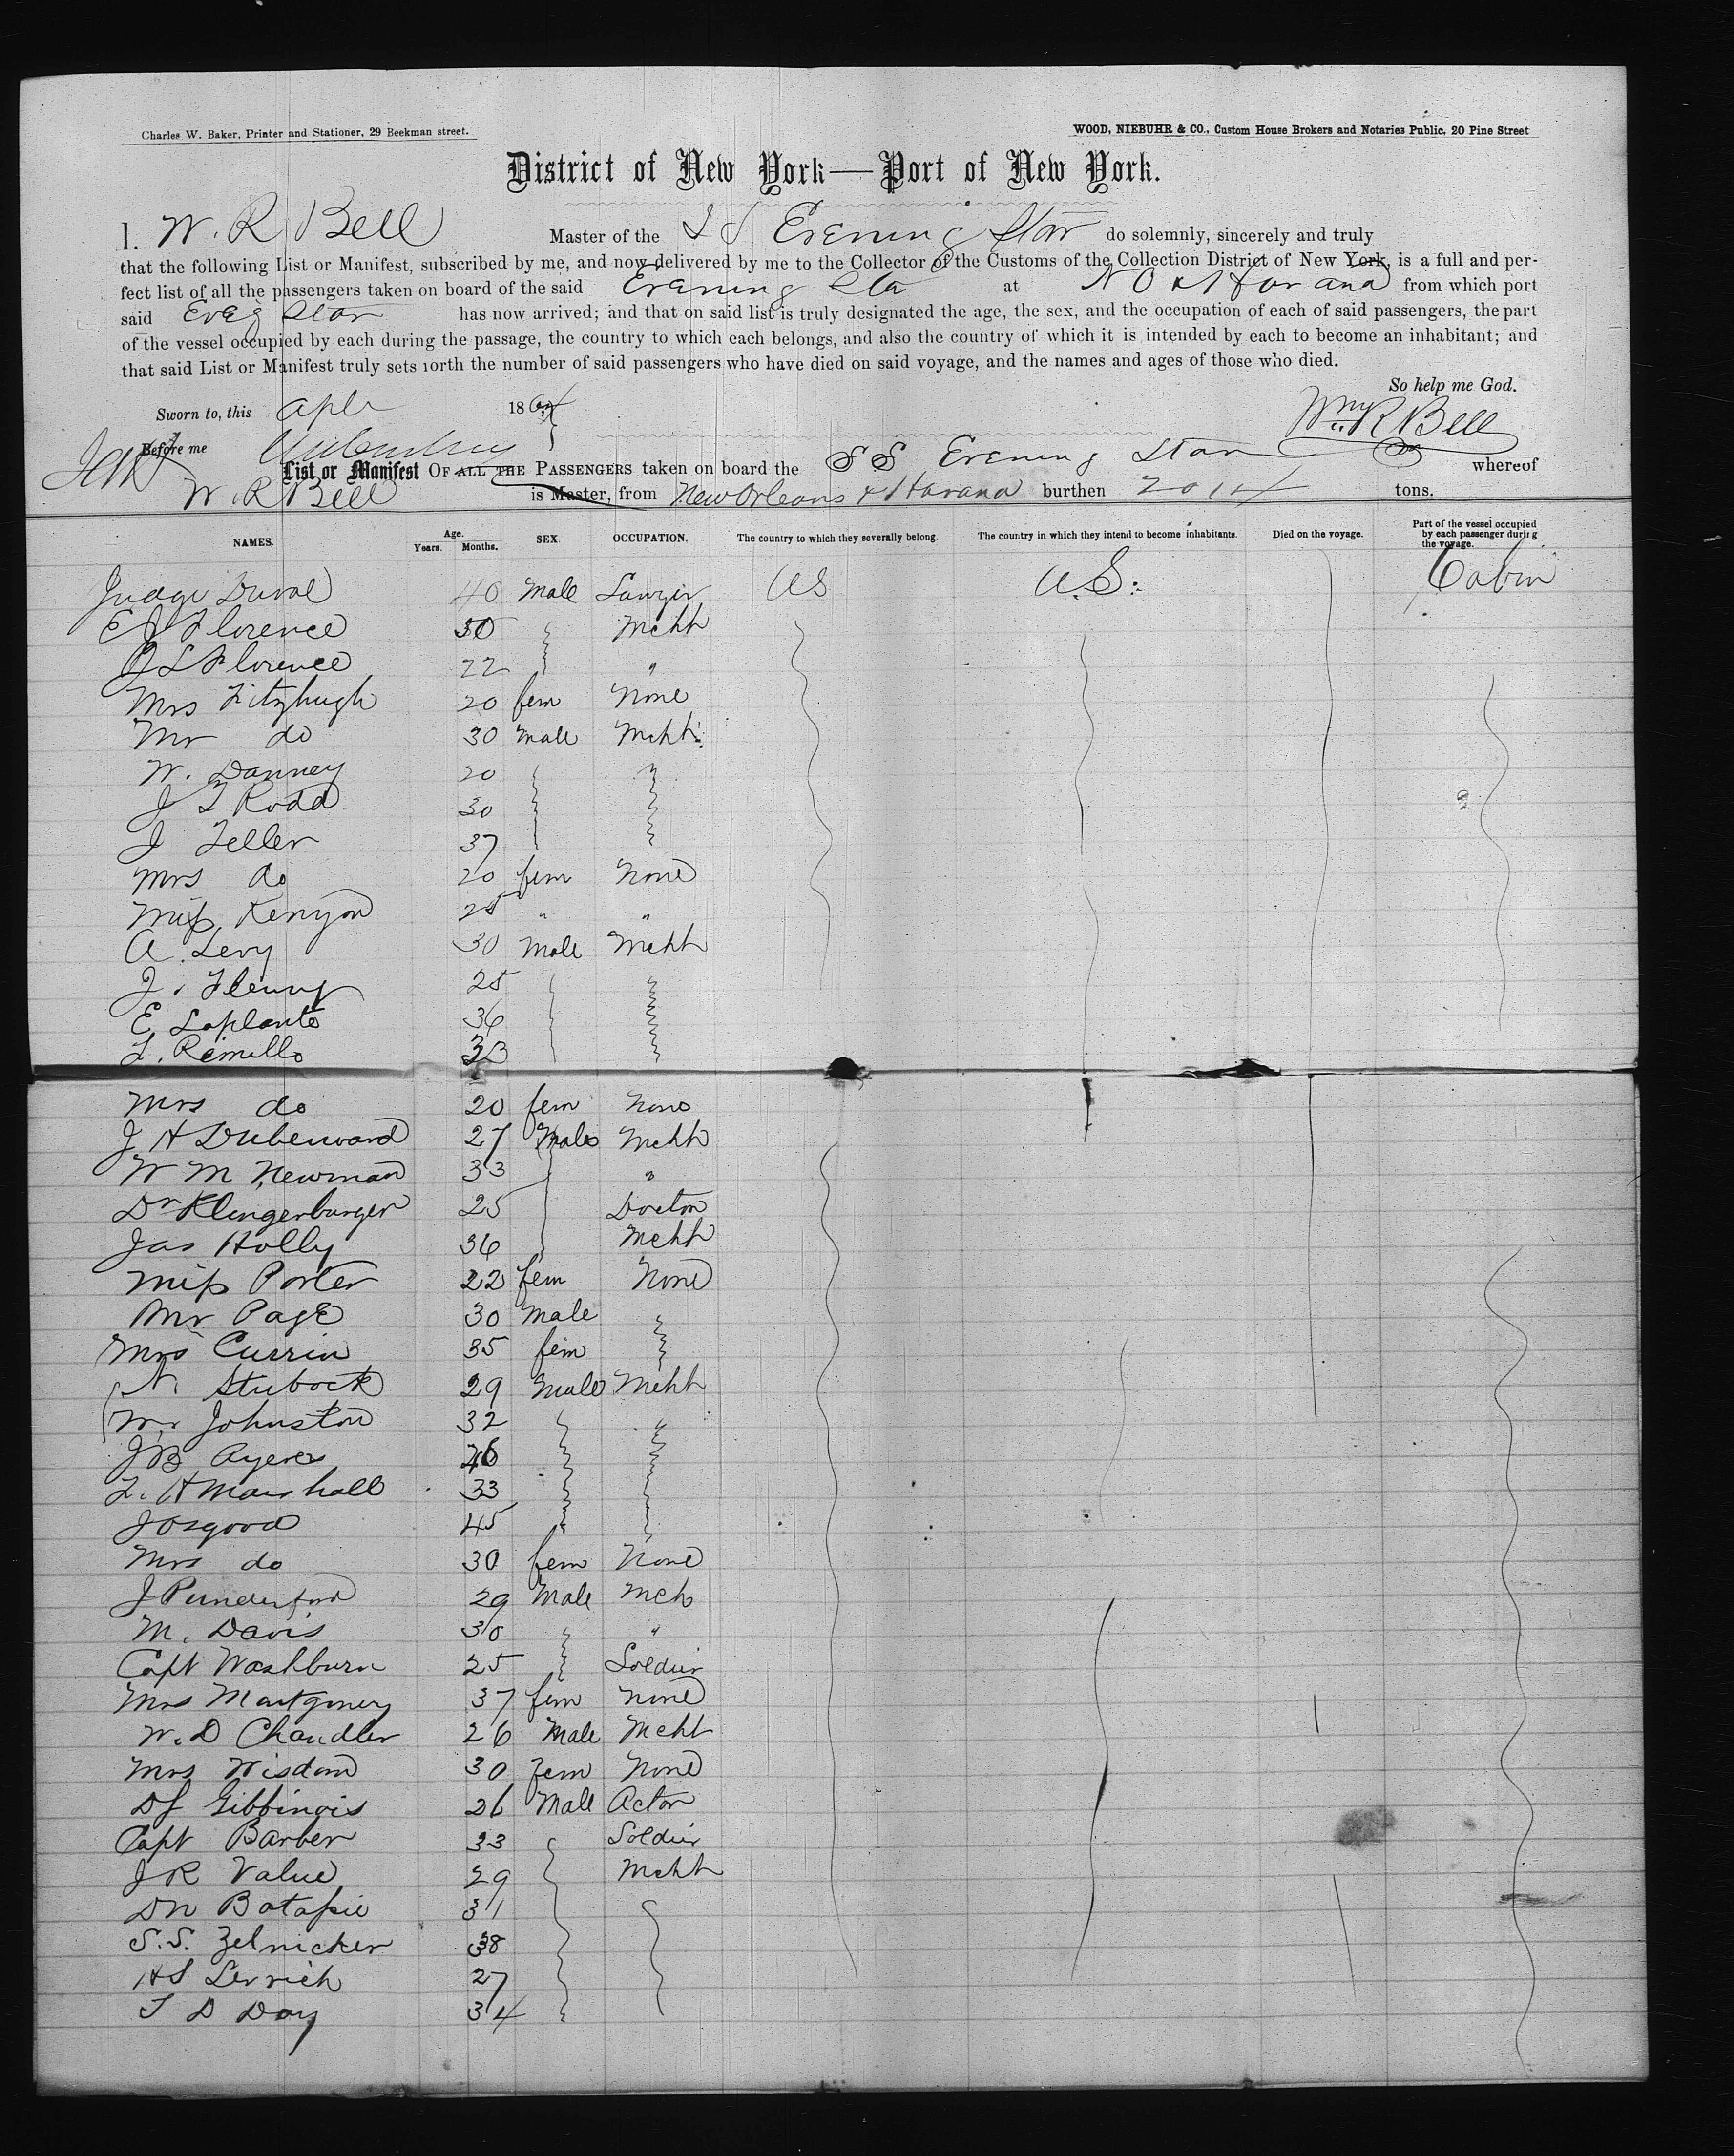 Charles W. Baker, Printer and Stationer, 29 Beekman street.
WOOD, NIEBUHR & CO., Custom House Brokers and Notaries Public, 20 Pine Street
District of New York—Port of New York.
I. W. R Bell Master of the S S Evening Star do solemnly, sincerely and truly
that the following List or Manifest, subscribed by me, and now delivered by me to the Collector of the Customs of the Collection District of New York, is a full and per-
fect list of all the passengers taken on board of the said Evening Sta at N O & Havana from which port
said Eveg Star has now arrived; and that on said list is truly designated the age, the sex, and the occupation of each of said passengers, the part
of the vessel occupied by each during the passage, the country to which each belongs, and also the country of which it is intended by each to become an inhabitant; and
that said List or Manifest truly sets forth the number of said passengers who have died on said voyage, and the names and ages of those who died.
So help me God.
Sworn to, this Apl 186
Wm R Bell
Before me
List or Manifest OF ALL THE PASSENGERS taken on board the S S Evening Star whereof
W. R Bell is Master, from New Orleans & Havana burthen 2014 tons.
NAMES. Age. Years. Months. SEX. OCCUPATION. The country to which they severally belong. The country in which they intend to become inhabitants. Died on the voyage. Part of the vessel occupied by each passenger during the voyage.
Judge Duval 40 Male Lawyer US U.S. Cabin
E J Florence 30 Mcht
J L Florence 22 "
Mrs Fitzhugh 20 fem None
Mr do 30 Male Mcht
W. Danney 20 "
J T Rodd 30
J Feller 37
Mrs do 20 fem None
Miss Kenyon 25 " "
A. Levy 30 Male Mcht
J. Fleury 25
E Laplante 36
L. Remillo 33
Mrs do 20 fem None
J H Dubenward 27 Male Mcht
W M Newman 33 "
Dr Klingerburger 25 Doctor
Jas Holly 36 Mcht
Miss Porter 22 fem None
Mr Page 30 Male
Mrs Currin 35 fem
N. Stubock 29 Male Mcht
W. Johnston 32
J B Ayers
L. H Marshall 33
J Osgood 45
Mrs do 30 fem None
J Punderford 29 Male Mch
M. Davis 30 "
Capt Washburn 25 Soldier
Mrs Montgomery 37 fem None
W. D Chandler 26 Male Mcht
Mrs Wisdom 30 Fem None
DJ Gibbinois 26 Male Actor
Capt Barber 33 Soldier
J R Value 29 Mcht
DN Batapie 31
S. S. Zelnicker 38
H S Lerrich 27
T D Day 34